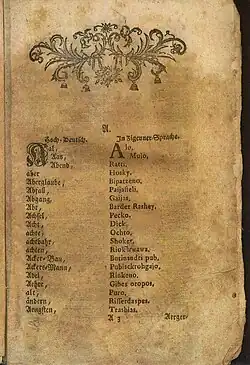 A.
Hoch-Deutsch. In Zigeuner-Sprache.
Aal, Alo,
Aas, Mulo,
Abend, Ratti,
aber Husky.
Aberglaube, Biparzeno,
Abfall,
Abgang, Gaijas,
Abt, Barder Rashay,
Achsel, Pecko,
Acht, Dick,
achte, Ochto,
achtbahr, Shoker,
achten,
Acker-Bau, Boriandri pub,
Ackers-Mann, Pubisckrobgajo,
Adel, Riakeno,
Gibes oropos,
alt, Puro,
ändern, Risserdaspes,
Aengsten, Trashias,
A 3 Aerger-